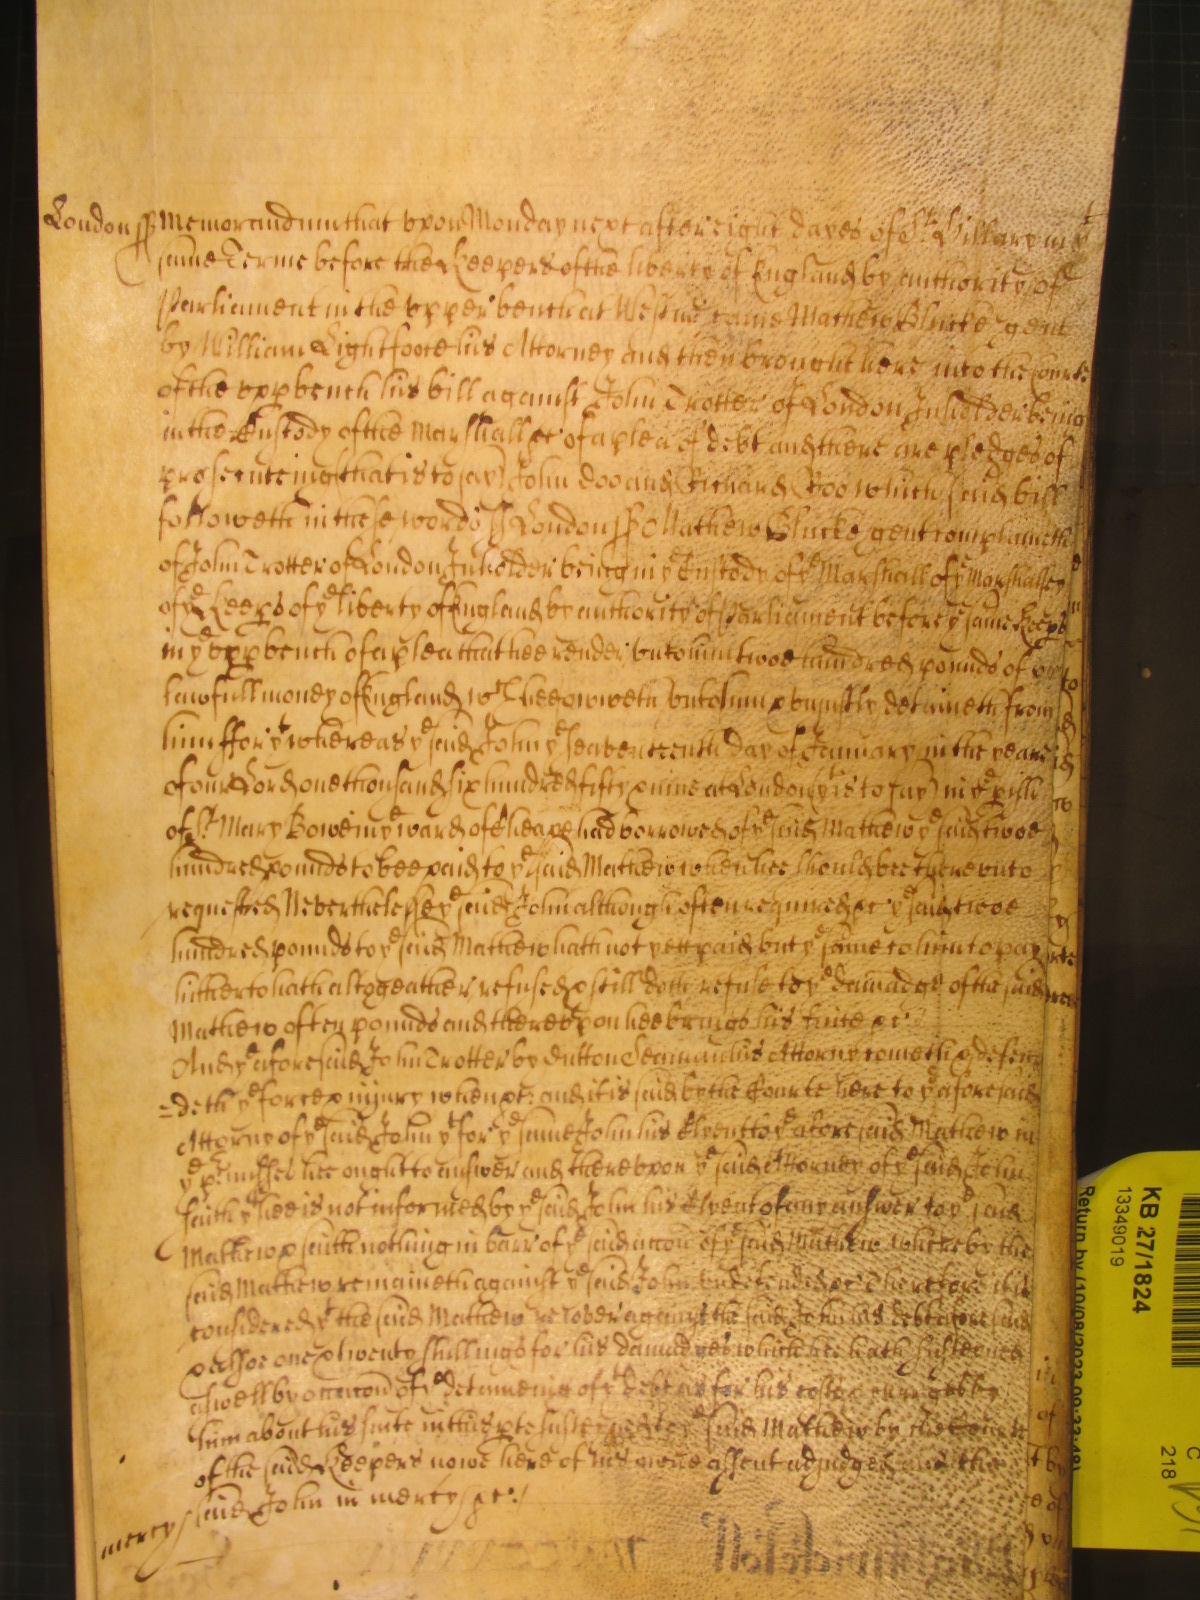 London ss Memorandum that vpon Monday next after eight dayes of St Hillary in ye
same Terme before the Keepers of the liberty of England by authority of
Parliament in the vpper bench at Westmr came Mathew Blucke gent
by William Lightfoote his Attorney and then brought here into the Courte
of the vpp bench his bill against John Trotter of London Inholder being
in the Custody of the Marshall &c of a plea of debt and there are pledges of
prosecuting (that is to say) John doo and Richard Roo which said bill
followeth in these words ss London ss Mathew Blucke gent complaineth
of John Trotter of London Inholder being in ye Custody of ye Marshall of ye Marshalsey
of ye Keeps of ye liberty of England by authority of Parliament before ye same Keeps
in ye vpp bench of a plea that hee render vnto him twoe hundred pounds of
lawfull money of England wch hee oweth vnto him & vniustly detaineth from
him ffor yt whereas ye said John ye seaventeenth day of January in the yeare
of our Lord one thousand six hundred fifty & nine at London (yt is to say) in ye pish
of St Mary Bowe in ye ward of Cheape had borrowed of ye said Mathew ye said twoe
hundred pounds to bee paid to ye said Mathew when hee should bee therevnto
requested Neverthelesse ye said John although often required &c ye said twoe
hundred pounds to ye said Mathew hath not yett paid but ye same to him to pay
hitherto hath altogeather refused & still doth refuse to ye damadge of the said
Mathew of ten pounds and therevpon hee brings his suite &c
And ye aforesaid John Trotter by Dutton Seaman his Attorny cometh & defen
=deth ye force & injury when &c and it is said by the Courte here to ye aforesaid
Attorny of ye said John yt for ye same John his Clyent to ye aforesaid Mathew in
ye pmisses hee ought to answer and therevpon ye said Attorney of ye said John
saith yt hee is not informed by ye said John his Clyent of any answer to ye said
Mathew & saith nothing in barr of ye said accon of ye said Mathew whereby the
said Mathew remaineth against ye said John vndefended &c Therefore it is
considered yt the said Mathew recover against the said John his debt aforesaid
& alsoe one & twenty shillings for his damadges which hee hath susteyned
aswell by occacon of ye detaineing of yt debt as for his costs & charges by
him about his suite in this pte susteyned to ye said Mathew by the Courte
of the said Keepers nowe here of his owne assent adjudged and the
mercy said John in mercy &c
KB 27/1824
13349019
Return by (10/08/2023 09:33:48)
C
218